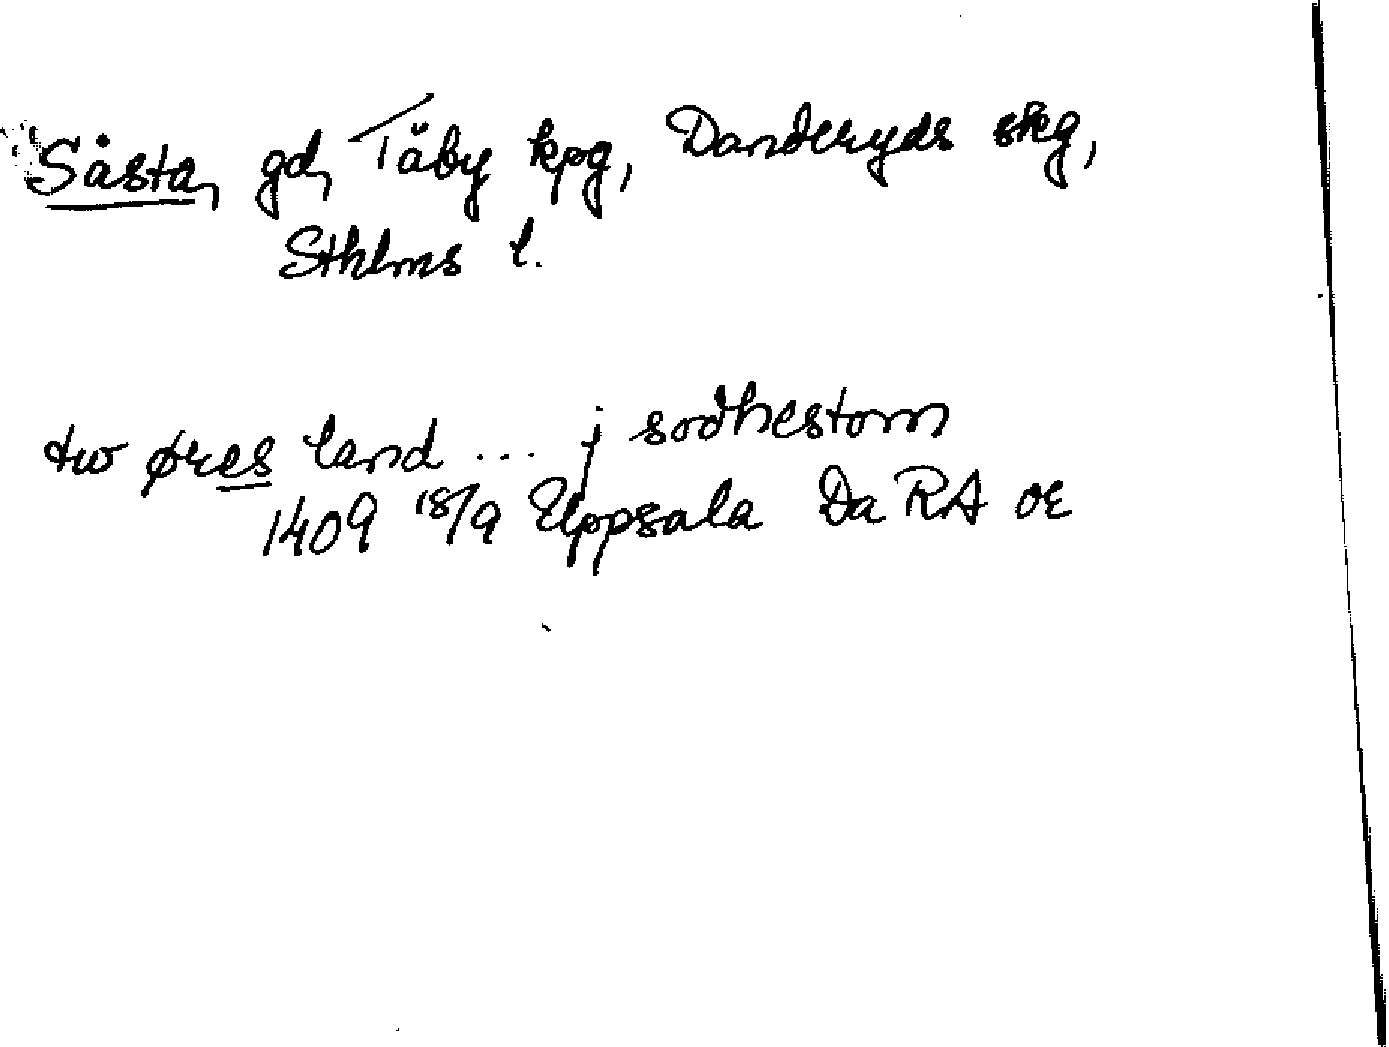 Såsta, gd, Täby kpg, Danderyds skg,
Sthlms l.
tw øres land ... j sodhestom
1409 18/9 Uppsala Da RA or